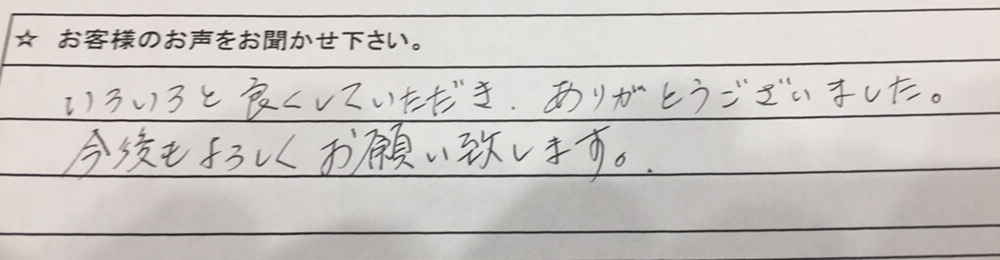 ☆ お客様のお声をお聞かせ下さい。
いろいろと良くしていただき、ありがとうございました。
今後もよろしくお願い致します。